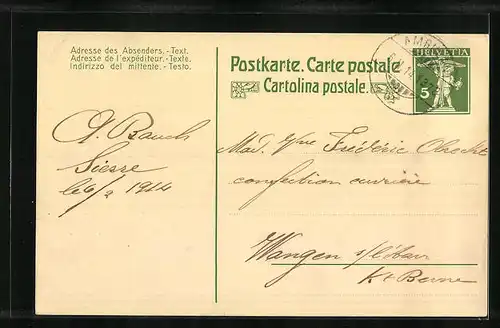 Adresse des Absenders.-Text.
Adresse de l'expéditeur.-Texte.
Indirizzo del mittente.-Testo.
Postkarte. Carte postale
Cartolina postale.
HELVETIA
5
A. Bauch
le 6/2 1914
Mad. Vve Frédéric Obrecht
confection ouvrière
Wangen s/l'Aar
Kt Berne